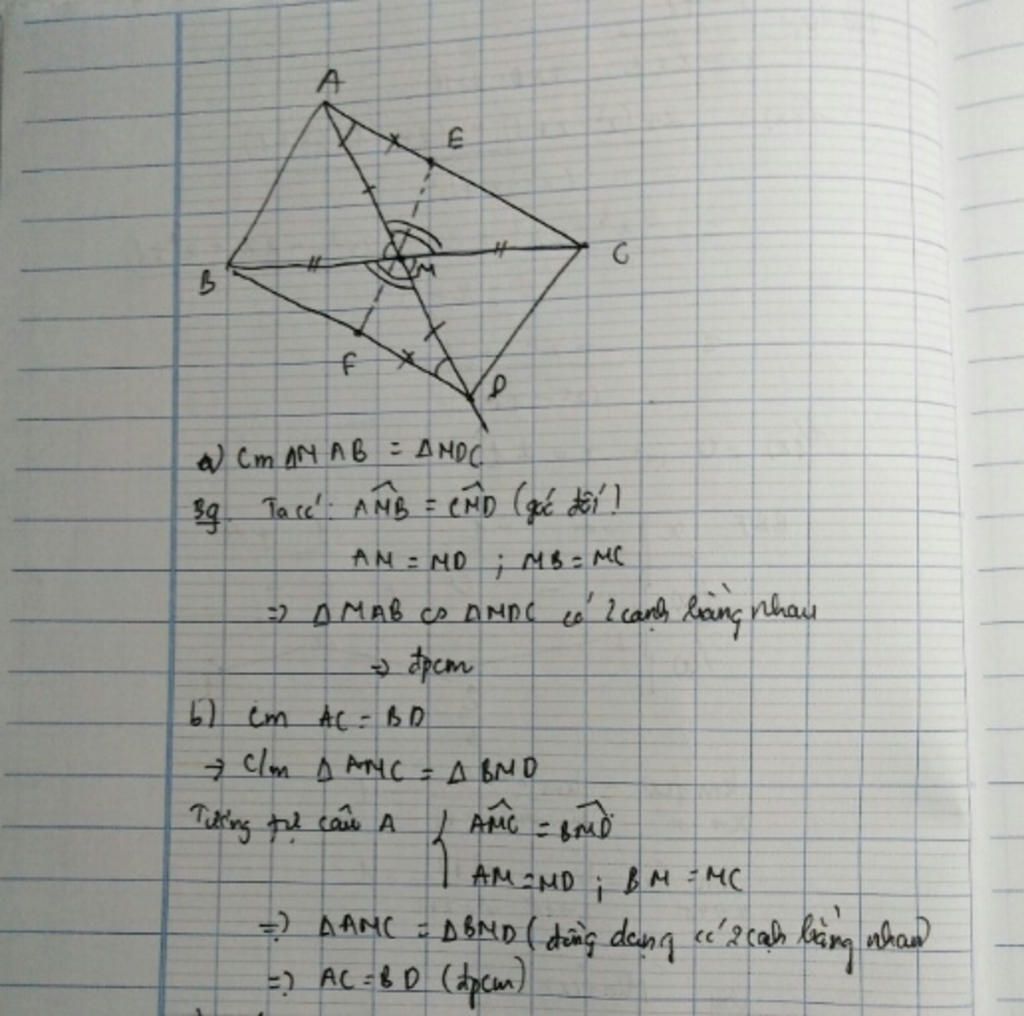 A
E
B
M
C
F
D
a) Cm ΔMAB = ΔMDC
Bg Ta có: AM̂B = CM̂D (góc đối)
AM = MD ; MB = MC
=> ΔMAB ∽ ΔMDC có 2 cạnh bằng nhau
=> đpcm
b) Cm AC = BD
-> C/m ΔAMC = ΔBMD
Tương tự câu A { AM̂C = BM̂D
AM = MD ; BM = MC
=> ΔAMC = ΔBMD (đồng dạng có 2 cạh bằng nhau)
=> AC = BD (đpcm)